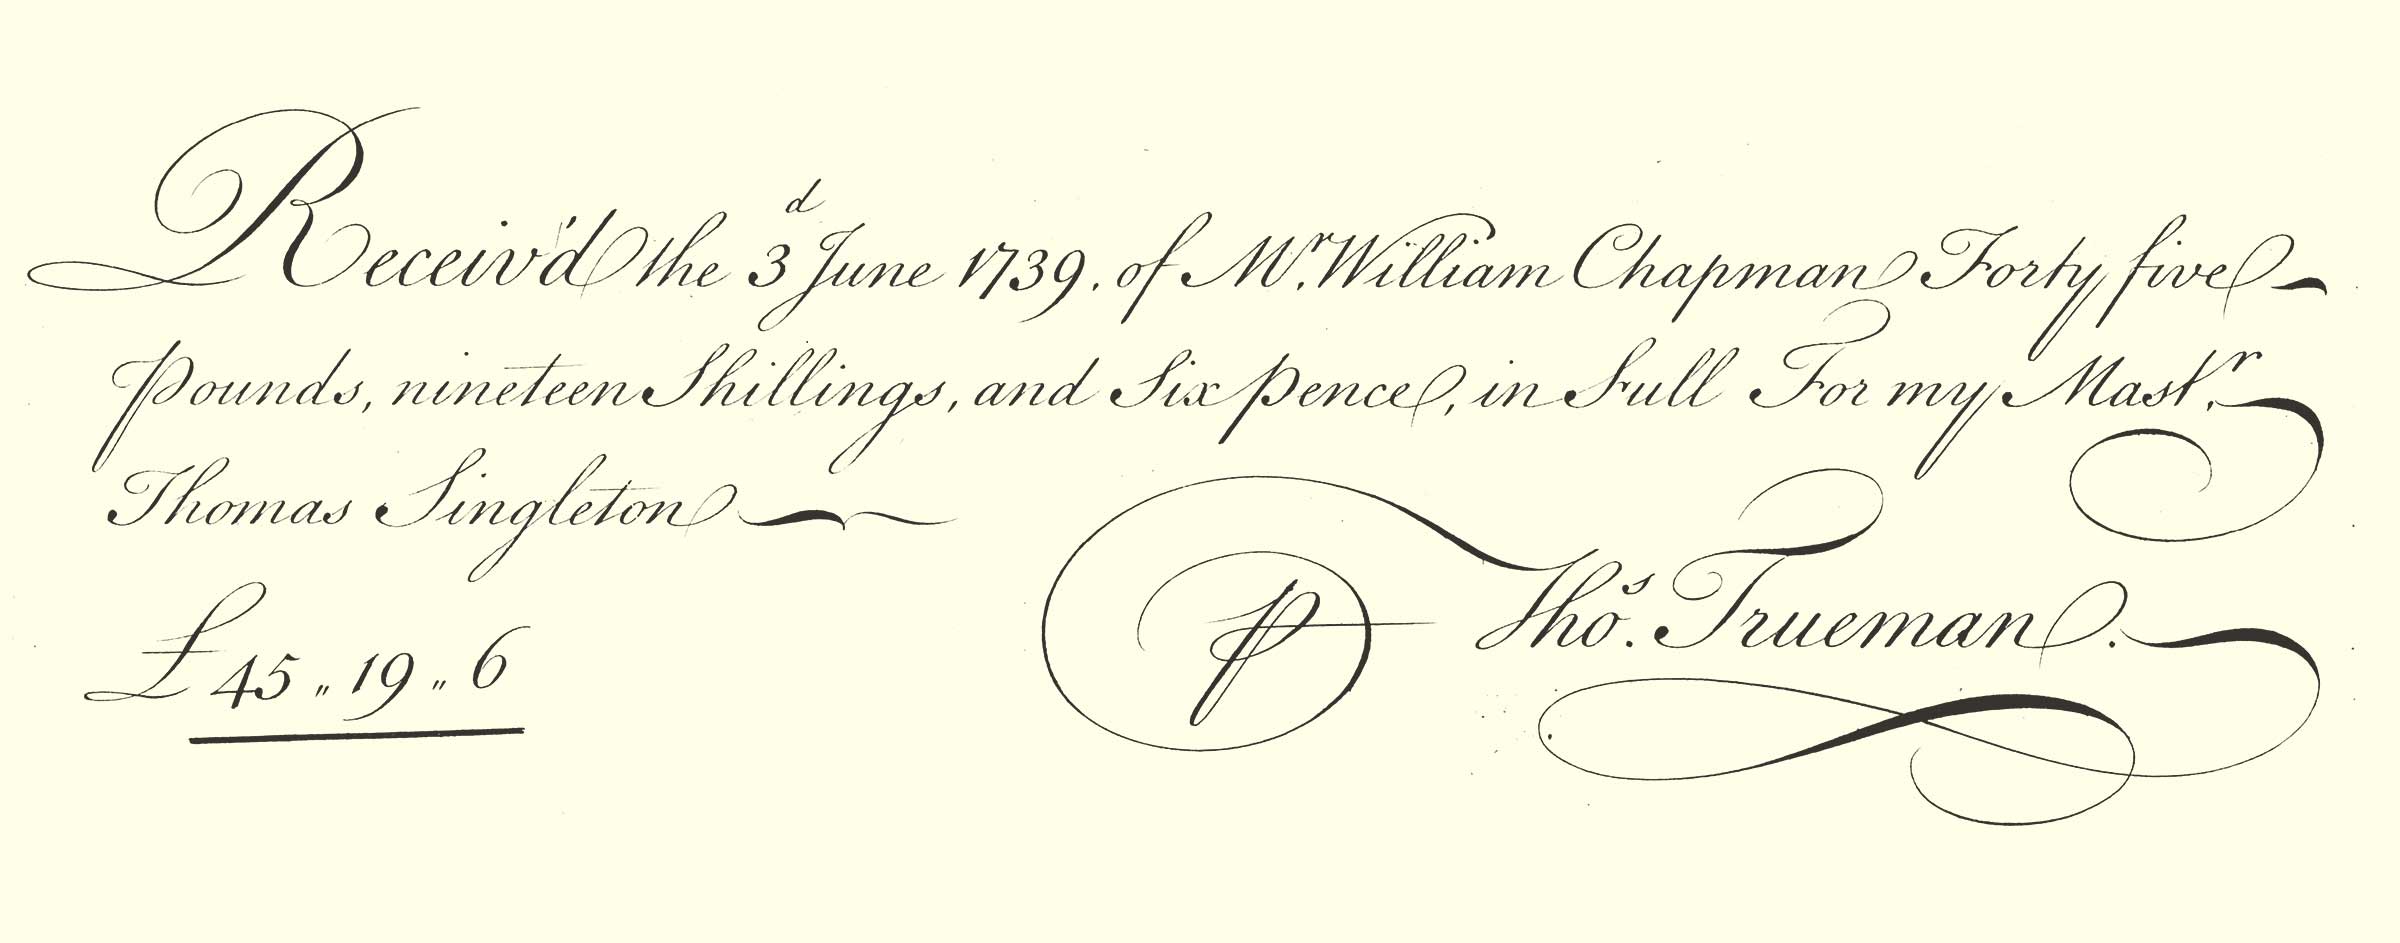 Receiv'd the 3d June 1739. of Mr. William Chapman Forty five
Pounds, nineteen Shillings, and Six pence, in Full For my Mastr.
Thomas Singleton
P Thos. Trueman.
£ 45 " 19 " 6